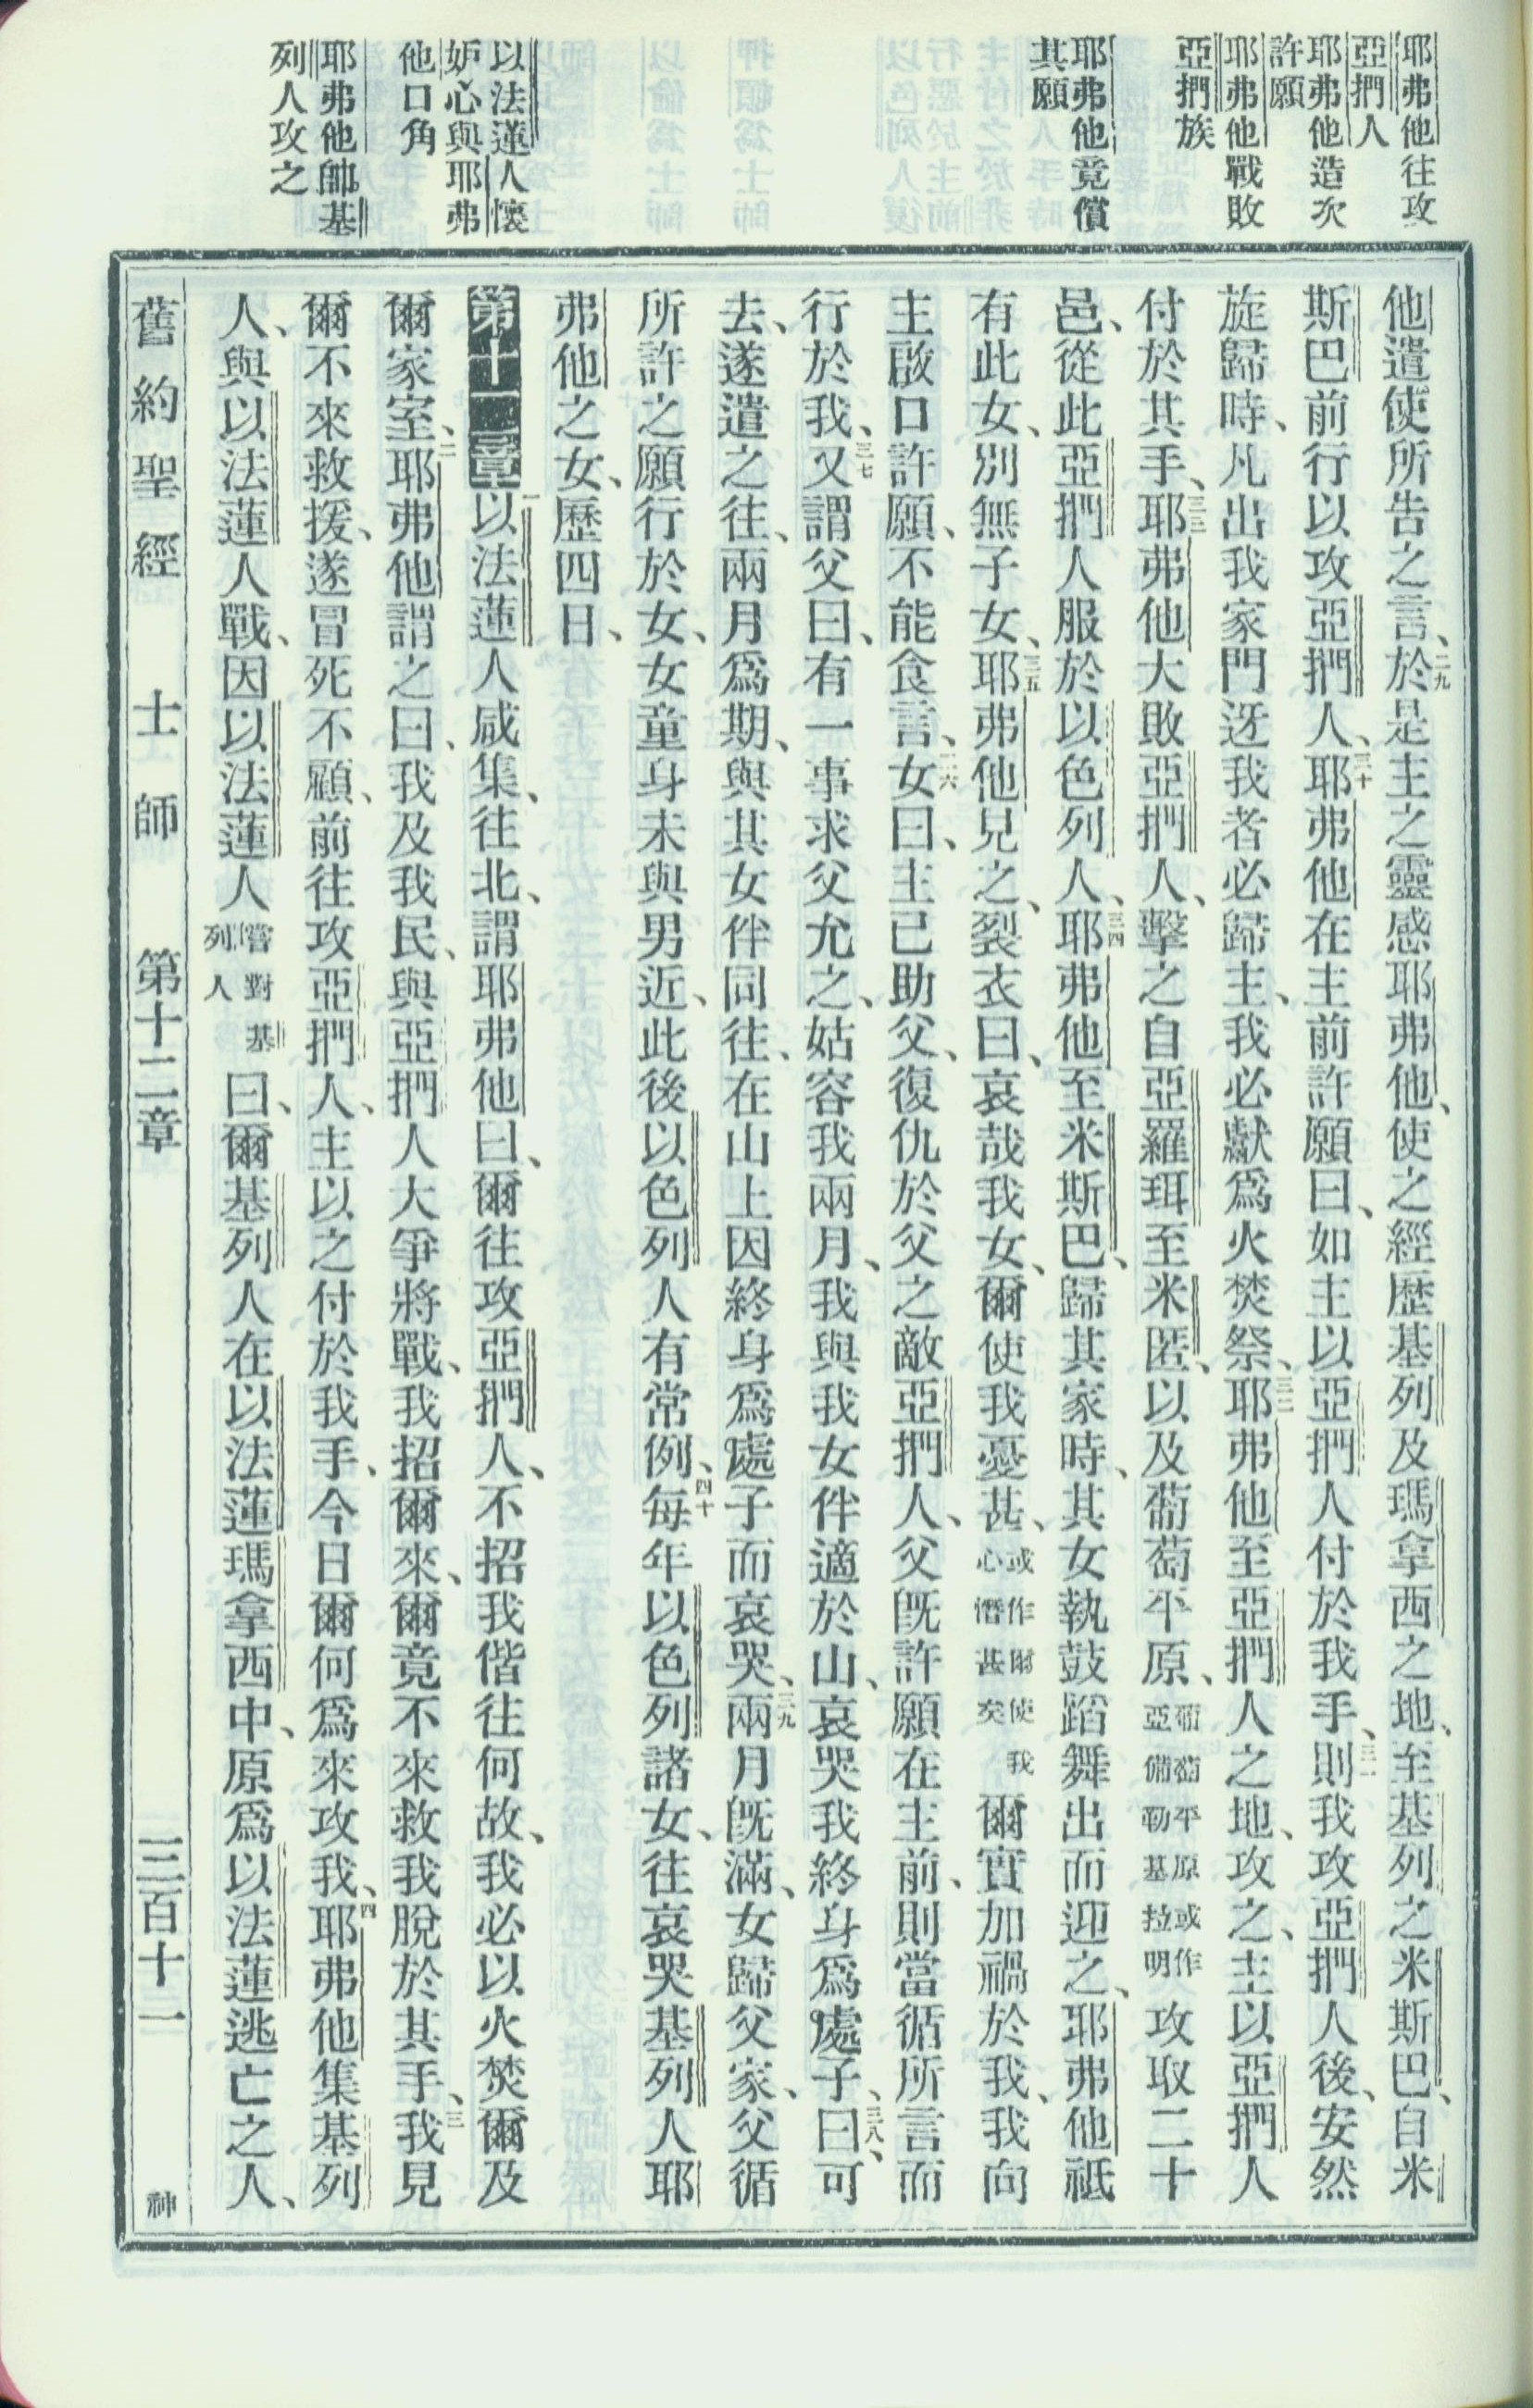 耶弗他往攻
亞捫人
耶弗他造次
許願
耶弗他戰敗
亞捫族
耶弗他竟償
其願
以法蓮人懷
妒心與耶弗
他口角
耶弗他帥基
列人攻之
他遣使所告之言、二九於是主之靈感耶弗他、使之經歷基列及瑪拿西之地、至基列之米斯巴、自米
斯巴前行以攻亞捫人、三十耶弗他在主前許願曰、如主以亞捫人付於我手、三一則我攻亞捫人後、安然
旋歸時、凡出我家門迓我者必歸主、我必獻爲火焚祭、三二耶弗他至亞捫人之地、攻之、主以亞捫人
付於其手、三三耶弗他大敗亞捫人、擊之自亞羅珥至米匿、以及葡萄平原、葡萄平原或作亞備勒基拉明攻取二十
邑、從此亞捫人服於以色列人、三四耶弗他至米斯巴、歸其家時、其女執鼓蹈舞出而迎之、耶弗他祗
有此女、別無子女、三五耶弗他見之、裂衣曰、哀哉我女、爾使我憂甚、或作爾使我心憯甚矣爾實加禍於我、我向
主啟口許願、不能食言、三六女曰、主已助父、復仇於父之敵亞捫人、父旣許願在主前、則當循所言而
行於我、三七又謂父曰、有一事求父允之、姑容我兩月、我與我女伴適於山、哀哭我終身爲處子、三八曰、可
去、遂遣之往、兩月爲期、與其女伴同往、在山上因終身爲處子而哀哭、三九兩月旣滿、女歸父家、父循
所許之願行於女、女童身未與男近、此後以色列人有常例、四十每年以色列諸女、往哀哭基列人耶
弗他之女、歷四日、
第十二章一以法蓮人咸集、往北、謂耶弗他曰、爾往攻亞捫人、不招我偕往何故、我必以火焚爾及
爾家室、二耶弗他謂之曰、我及我民、與亞捫人大爭將戰、我招爾來、爾竟不來救我脫於其手、三我見
爾不來救援、遂冒死不顧、前往攻亞捫人、主以之付於我手、今日爾何爲來攻我、四耶弗他集基列
人、與以法蓮人戰、因以法蓮人嘗對基列人曰、爾基列人在以法蓮瑪拿西中、原爲以法蓮逃亡之人、
舊約聖經 士師 第十二章 三百十一 神